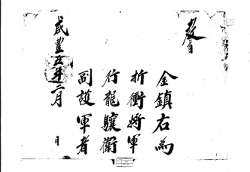 教旨
金鎮右為
折衝將軍
行龍驤衛
副護軍者
咸豐五年二月 日